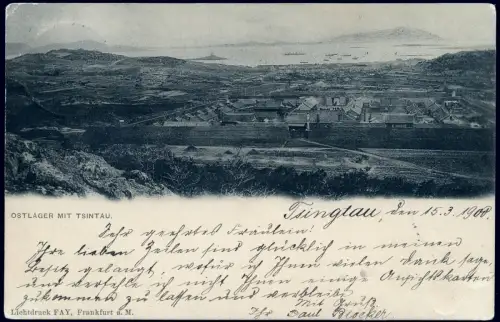 OSTLAGER MIT TSINTAU.
Tsingtau, den 15.3.1908.
Sehr geehrtes Fräulein!
Ihre lieben Zeilen sind glücklich in meinen
Besitz gelangt, wofür ich Ihnen vielen Dank sage,
und verfehle ich nicht Ihnen einige Ansichtskarten
zukommen zu lassen und verbleibe
Mit Gruß
Lichtdruck FAY, Frankfurt a. M.
Ihr Paul